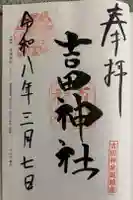 奉拝
吉田神社
令和八年三月七日